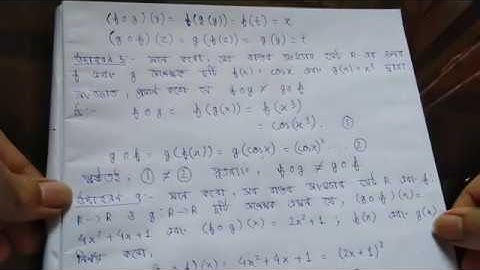 (f o g)(y) = f(g(y)) = f(t) = x
(g o f)(z) = g(f(z)) = g(y) = t
উদাহরণ 5:- মনে করো, সব বাস্তব সংখ্যার সেট R-এর ওপর
f এবং g অপেক্ষক দুটি f(x) = cosx এবং g(x) = x³ দ্বারা
প্রমাণ করো যে f o g ≠ g o f
f o g = f(g(x)) = f(x³)
= cos(x³). ①
g o f = g(f(x)) = g(cosx) = (cosx)³. ②
① ≠ ② সুতরাং, f o g ≠ g o f
উদাহরণ :- মনে করো, সব বাস্তব সংখ্যার সেট R এবং f:
R→R ও g: R→R দুটি অপেক্ষক এমন যে, (g o f)(x) =
4x² + 4x + 1 এবং (f o g)(x) = 2x² + 1; f(x) এবং g(x)
নির্ণয় করো.
(g o f)(x) = 4x² + 4x + 1 = (2x+1)²